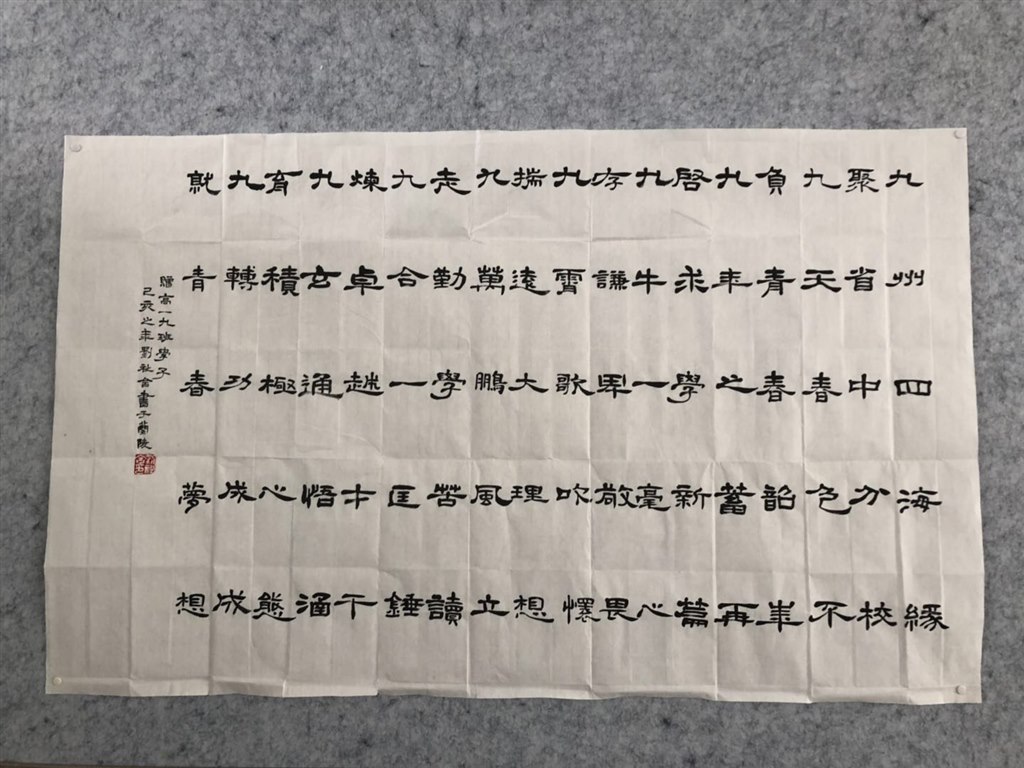 九州四海緣
聚省中分校
九天春色不
負青春韶華
九年之蓄再
啓求學新篇
九牛一毫心
存謙卑敬畏
九霄歌吹懷
揣遠大理想
九萬鵬風立
志勤學苦讀
九合一匡錘
煉卓越才干
九玄通悟涵
育積極心態
九轉功成成
就青春夢想
贈高一九班學子
己亥之年劉社會書于蘭陵